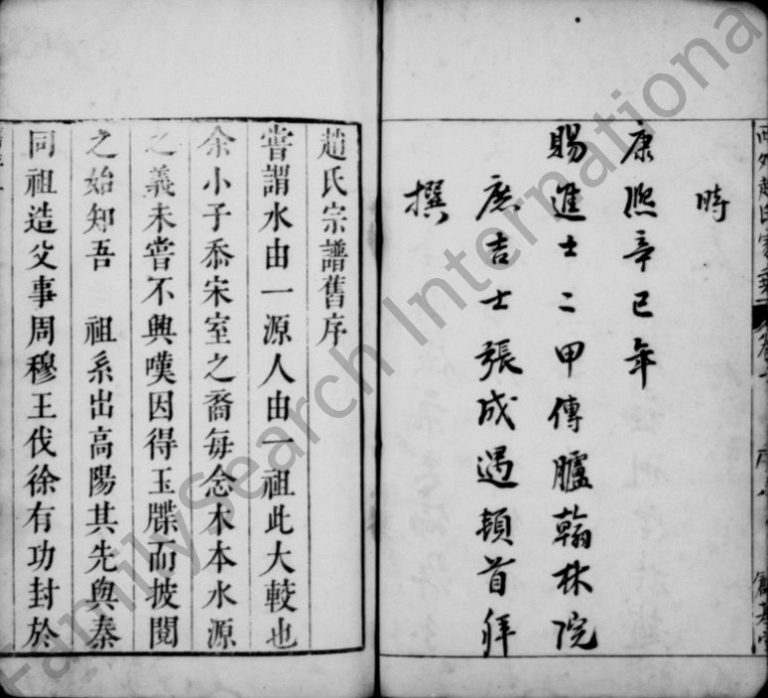 時
康熙辛巳年
賜進士二甲傳臚翰林院
庶吉士張成遇頓首拜
撰
趙氏宗譜舊序
嘗謂水由一源人由一祖此大較也
余小子忝宋室之裔每念木本水源
之義未嘗不興嘆因得玉牒而披閱
之始知吾 祖系出高陽其先與秦
同祖造父事周穆王伐徐有功封於
FamilySearch International